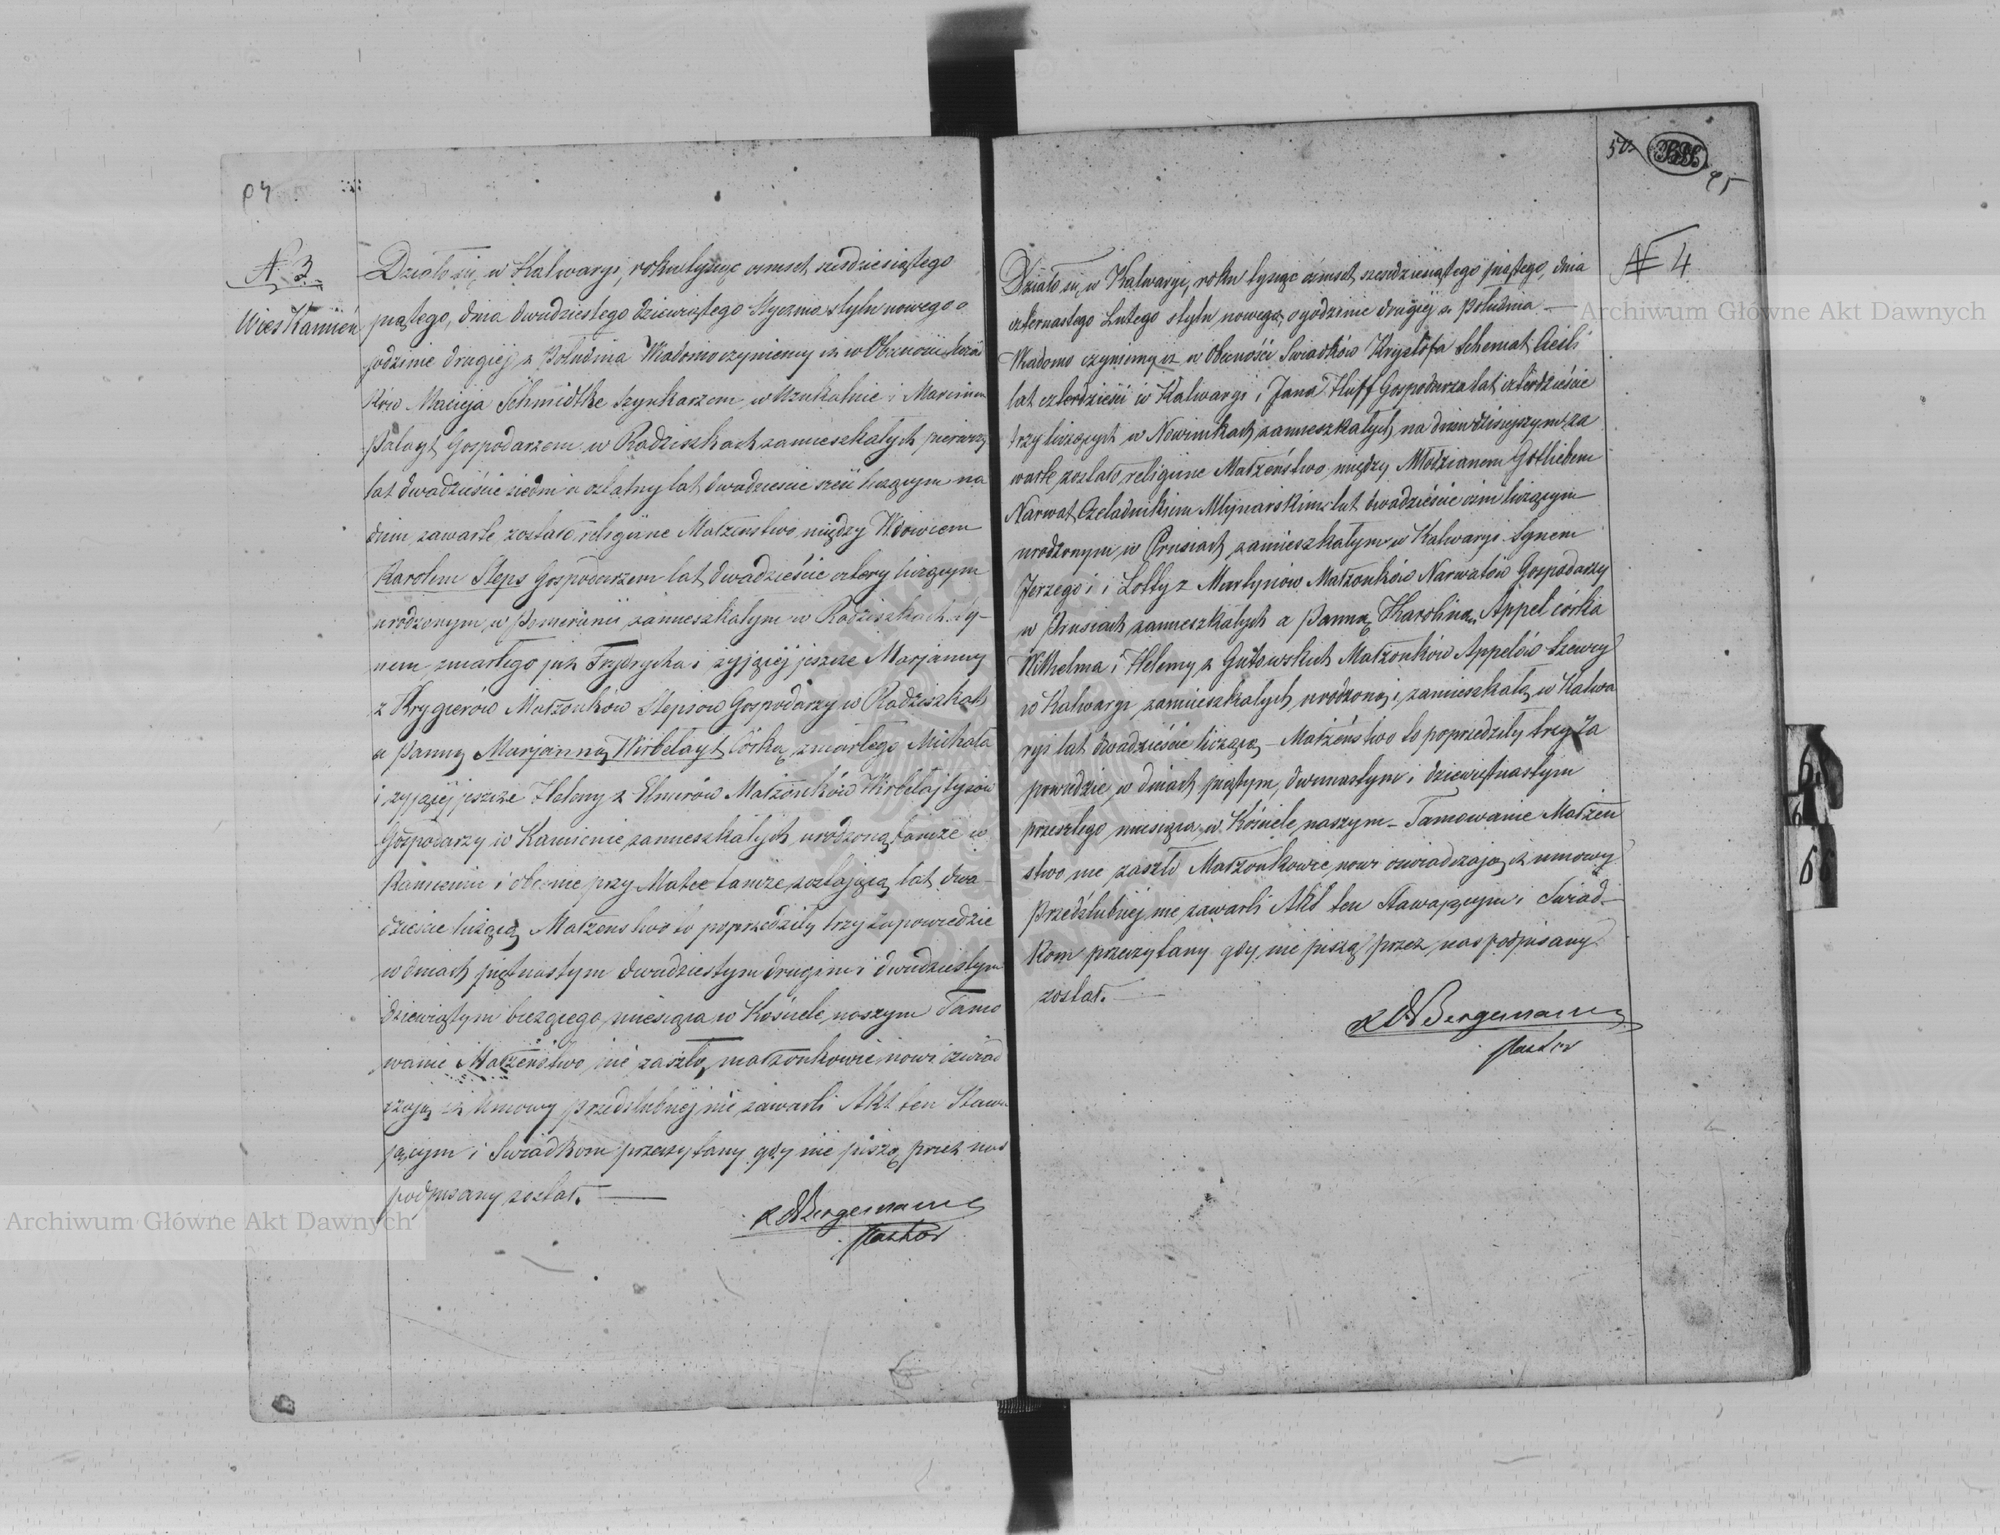 94
N. 3
Wieś Kamień
Działo się w Kalwaryi, roku tysiąc osmset sześdziesiątego
piątego, dnia dwudziestego dziewiątego Stycznia stylu nowego o
godzinie drugiej z Południa Wiadomo czyniemy iż w Obecności świad
ków Macieja Schmidtke Szynkarzem, w i Marcinem
Palayt Gospodarzem w Radziszkach zamieszkałych pierwszy
lat dwadzieście siedm a lat dwadzieście sześć liczącym na
dniu zawarte zostało religijne Małżeństwo między Wdowcem
Karolem Steps Gospodarzem lat dwadzieście cztery liczącym
urodzonym w Pomeranii zamieszkałym w Radziszkach Sy-
nem zmarłego już Frydrycha i żyjącéj jeszcze Marjanny
z Krygierów Małżonków Stepsow Gospodarzy w Radziszkach
a Panną Marjanną Wirbelayt Córką zmarłego Michała
i żyjącéj jeszcze Heleny z Elmirów Małżonków Wirbelajtysów
Gospodarzy w Kamienie zamieszkałych, urodzoną tamże w
Kamieniu i obecnie przy Matce tamże zostającą lat dwa-
dzieście liczącą Małżenstwo to poprzedziły trzy zapowiedzie
w dniach piętnastym dwudziestym drugim i dwudziestym
dziewiątym bieżącego miesiąca w Kościele naszym Tamo
wanie Małżeństwo nie zaszło, małżonkowie nowi oświad
czają iż Umowy przedslubnéj nie zawarli Akt ten Stawa
jącym i Swiadkom przeczytany gdy nie piszą przez nas
podpisany został.
Bergemann
Pastor
50
95
N 4
Działo się w Kalwaryi, roku tysiąc osmset szesdziesiątego piątego, dnia
czternastego Lutego stylu nowego, o godzinie drugiéj z Południa
Wiadomo czyniemy iż w Obecności Swiadków Krysztofa Schemat Cieśli
lat czterdzieści w Kalwaryi i Jana Huff Gospodarza lat czterdzieście
trzy liczących w Nowinikach zamieszkałych, na dniu dzisiejszym za
warte zostało religijne Małżeństwo, między Młodzianem Gotliebem
Narwat Czeladnikiem Młynarskim lat dwadzieście ośm liczącym
urodzonym w Prusiach zamieszkałym w Kalwaryi Synem
Jerzego i i Lotty z Martynów Małżonków Narwatów Gospodarzy
w Prusiach zamieszkałych a Panną Karoliną Appel córka
Wilhelma i Heleny z Gutowskich Małżonków Appelów Szewcy
w Kalwaryi zamieszkałych, urodzoną i zamieszkałą w Kalwa
ryi lat dwadzieście liczącą – Małżeństwo to poprzedziły trzy Za
powiedzie, w dniach piątym, dwunastym i dziewiętnastym
przeszłego miesiąca, w Kościele naszym – Tamowanie Małżeń
stwo nie zaszło Małżonkowie nowi oświadczają iż umowy
Przedślubnéj nie zawarli Akt ten Stawającym i Swiad-
kom przeczytany gdy nie piszą przez nas podpisany
został.
Bergemann
Pastor
Archiwum Główne Akt Dawnych
Archiwum Główne Akt Dawnych